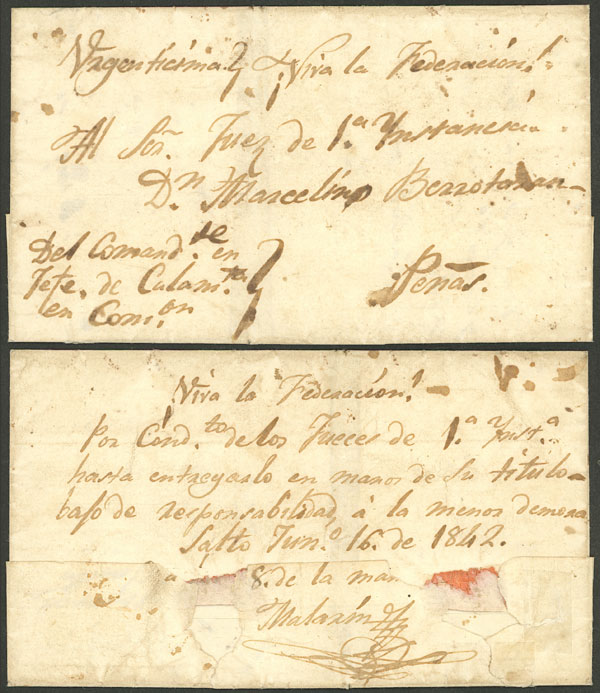 Vrgentícima ¡Viva la Federacíon!
Al Sor. Juez de 1.a Ynstancia
Dn. Marcelino Berrotaran
Del Comand.te en
Jefe. de Calam.ta Peñas.
en Com.on
¡Viva la Federacíon!
Por Cond.to de los Jueces de 1.a Ynst.a
hasta entregarlo en manos de su título
bajo de responsabilidad, á la menor demora
Salto Jun.o 16. de 1842.
a 8. de la mañ
Malarín